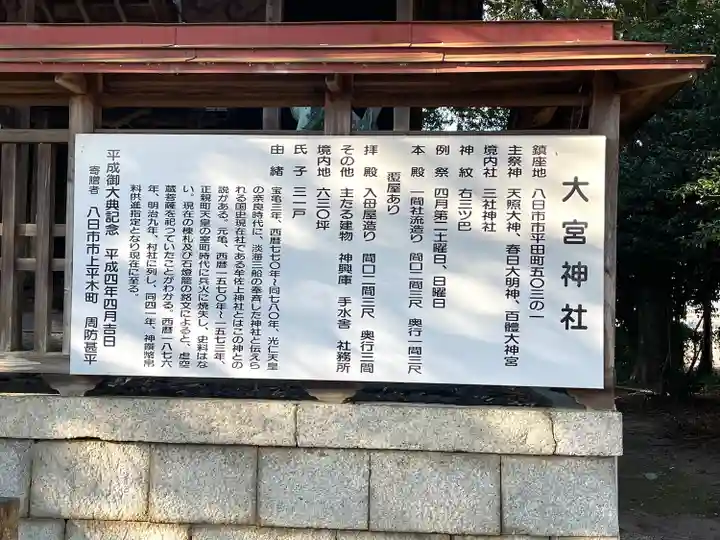 大宮神社
鎮座地 八日市市平田町五〇三の一
主祭神 天照大神、春日大明神、百體大神宮
境内社 三社神社
神紋 右三ツ巴
例祭 四月第二土曜日、日曜日
本殿 一間社流造り 間口一間三尺 奥行一間三尺
覆屋あり
拝殿 入母屋造り 間口二間三尺 奥行三間
その他 主たる建物 神興庫 手水舎 社務所
境内地 六三〇坪
氏子 三一戸
由緒 宝亀三年、西暦七七〇年~同七八〇年、光仁天皇
の奈良時代に、淡海三船の奉斉した神社と伝えら
れる国史現在社である牟佐上神社とはこの神との
説がある。元亀、西暦一五七〇年~一五七三年、
正親町天皇の室町時代に兵火に焼失し、史料はな
い。現在の棟札及び石燈籠の銘文によると、虚空
蔵菩薩を祀っていたことがわかる。西暦一八七六
年、明治九年、村社に列し、同四一年、神饌幣帛
料供進指定となり現在に至る。
平成御大典記念 平成四年四月吉日
寄贈者 八日市市上平木町 周防甚平